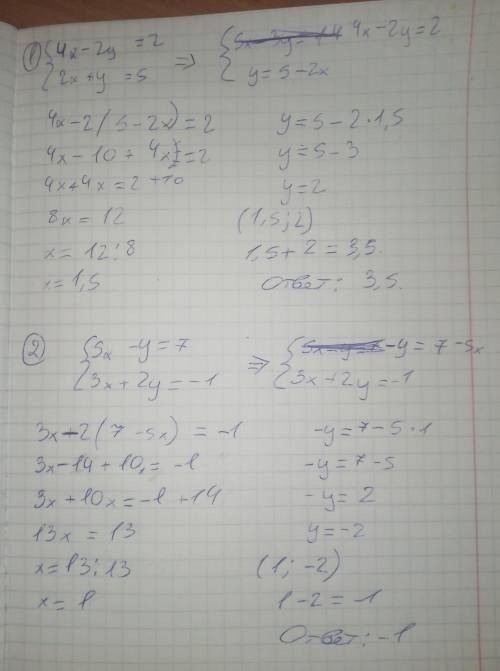 ① { 4x-2y =2 => { 4x-2y=2
2x+y =5 y=5-2x
4x-2(5-2x)=2
4x-10+4x=2
4x+4x=2+10
8x=12
x=12:8
x=1,5
y=5-2·1,5
y=5-3
y=2
(1,5;2)
1,5+2=3,5.
Ответ: 3,5.
② { 5x-y=7 => { -y=7-5x
3x+2y=-1 3x+2y=-1
3x-2(7-5x)=-1
3x-14+10x=-1
3x+10x=-1+14
13x=13
x=13:13
x=1
-y=7-5·1
-y=7-5
-y=2
y=-2
(1;-2)
1-2=-1
Ответ:-1